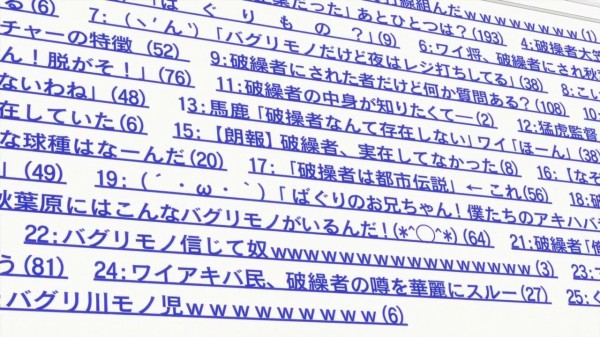 る(6) 7:(ヽ'ん')「ばぐりもの?」(9) 「 葉だった」あとひとつは?(193) 組んだｗｗｗｗｗｗｗ(1)
チャーの特徴 (52) 9:「バグリモノだけど夜はレジ打ちしてる」(38) 6:ワイ将、破繰者にされ秋 4:破操者大
ん!脱がそ!」(76) 11:破繰者にされた者だけど何か質問ある?(108) 8:こし
ないわね」(48) 13:破繰者の中身が知りたくて―(2) 10:
在していた(6) 15:馬鹿「破操者なんて存在しない」ワイ「ほーん」(38) 12:猛虎監督
な球種はなーんだ(20) 17:【朗報】破繰者、実在してなかった(8)
」(49) 19:「破操者は都市伝説」←これ(56) 16:【なぞ
秋葉原にはこんなバグリモノがいるんだ!(*^◯^*)(64) (´・ω・`)「ばぐりのお兄ちゃん!僕たちのアキハバ 18:破
22:バグリモノ信じて奴ｗｗｗｗｗｗｗｗｗｗｗｗｗｗｗｗ(3) 21:破繰者「俺
う(81) 24:ワイアキバ民、破繰者の噂を華麗にスルー(27) 23:
:バグリ川モノ児ｗｗｗｗｗｗｗｗｗ(6) 25: